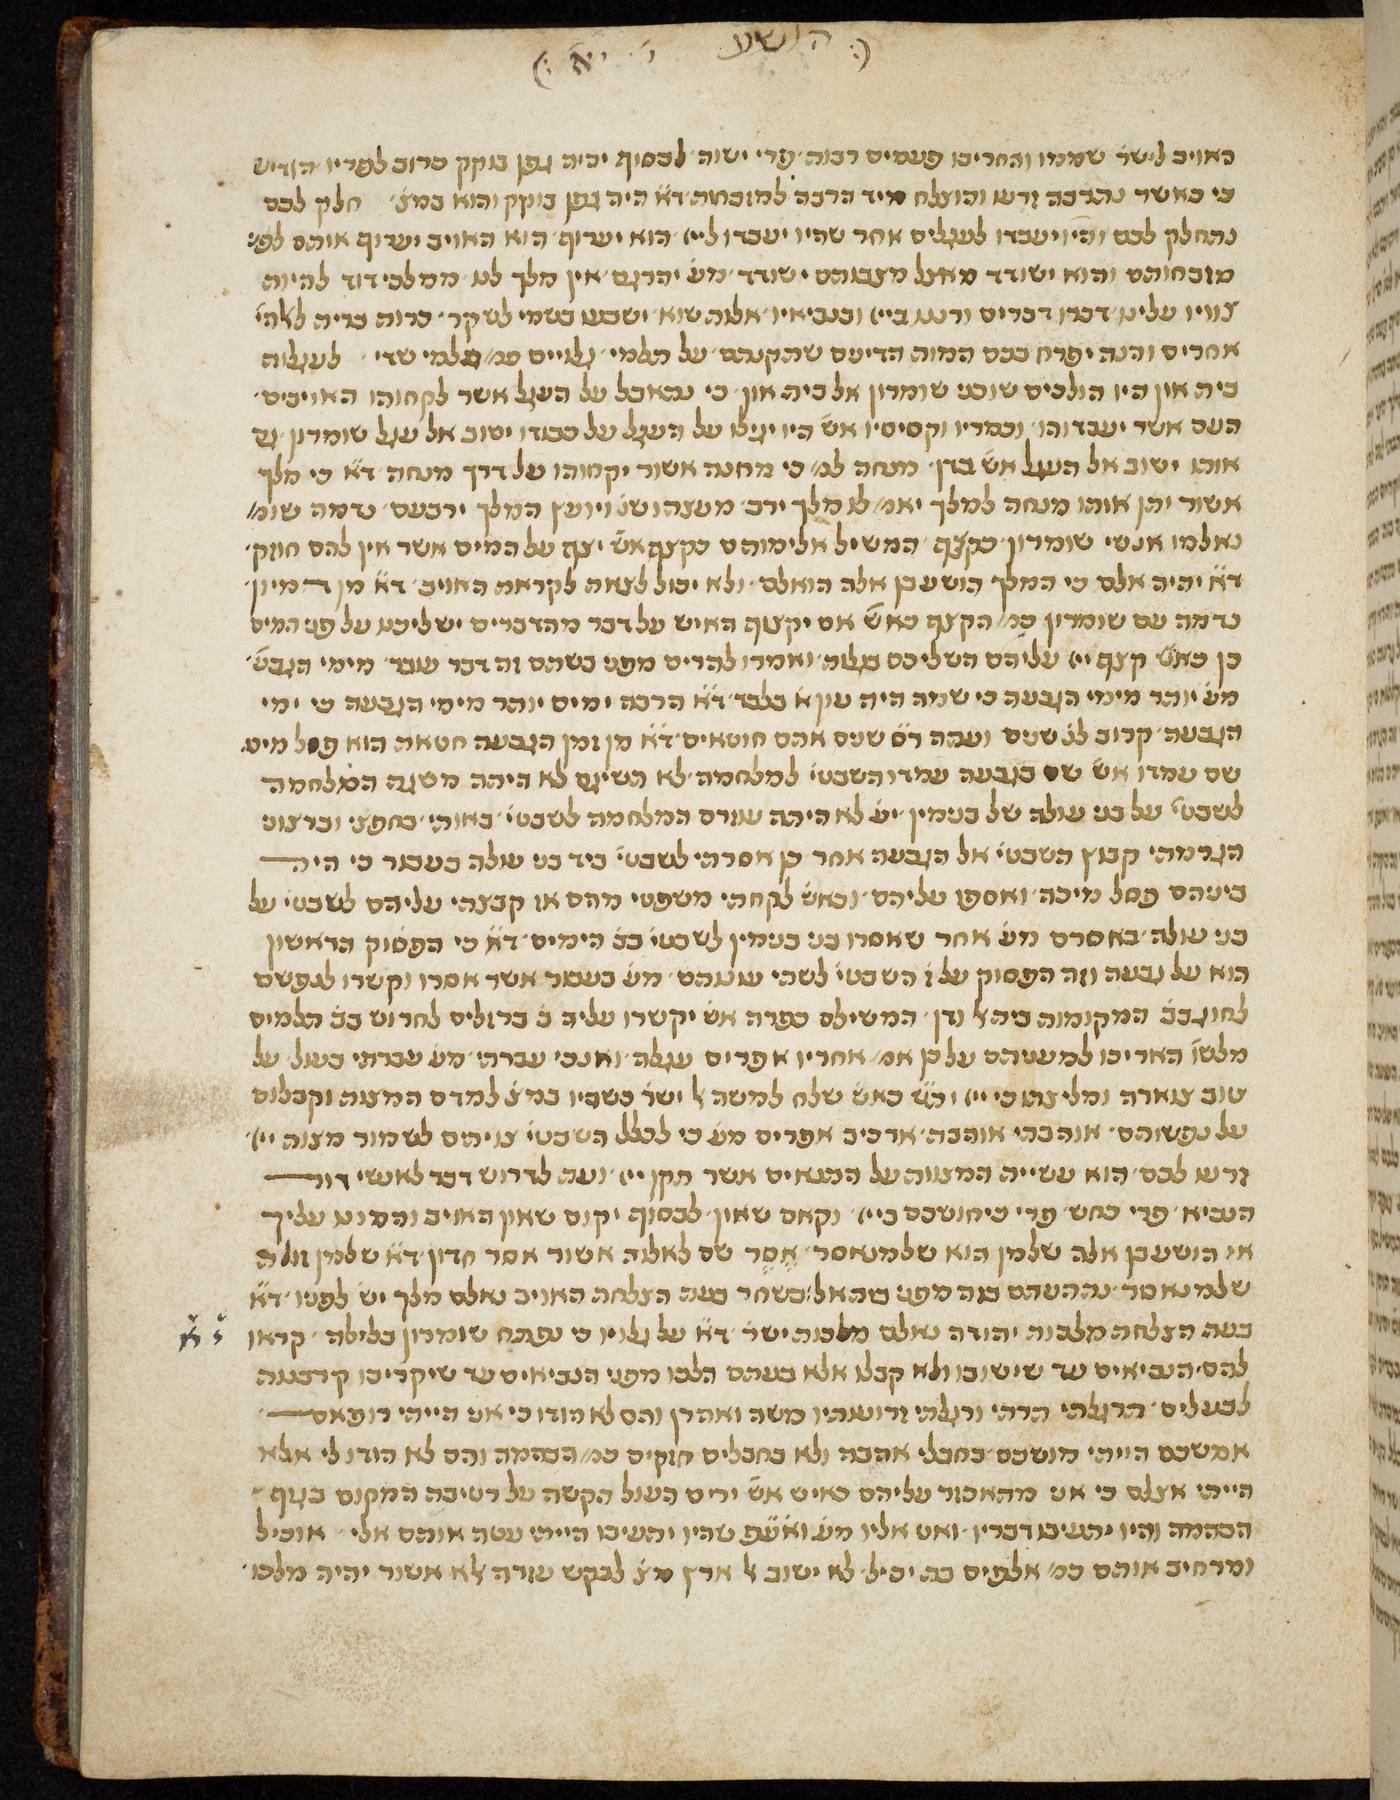 הושע י׳ יא׳
האויב לישר׳ שממו והחריבו פעמים רבות׳ פרי ישוה׳ לבסוף יהיה גפן בוקק כרוב לפריו
כי כאשר נתרבה זרעו והוצלח מיד הרבה למזבחות׳ ד״א היה גפן בוקק והוא במצ׳ חלק לבם
נתחלק לבם והיו יעבדו לעגלים אחר שהיו יעבדו לייי׳ הוא יערוף׳ הוא האויב יערוף אותם לפני
מזבחותם והוא ישודד מאצל מצבותם ישודד׳ מע׳ יהרגם׳ אין מלך לנו׳ ממלכי דוד להיות
צוויו עלינו׳ דברו דברים ורגנו בייי׳ ובנביאיו׳ אלות שוא׳ ישבעו בשמי לשקר׳ כרות ברית
אחרים והנה יפרח בכם המות הדיעם שהקנתם׳ על תלמי׳ גלויים כמ׳ תלמי שדי׳ לעגלות
בית און היו הולכים שוכני שומרון אל בית און׳ כי נתאבל על העגל אשר לקחוהו האויבים׳
העם אשר יעבדוהו׳ וכמריו וקסיסיו אש׳ היו יגילו על העגל על כבודו ישוב אל עגל שומרון׳ גם
אותו ישוב אל העגל אש׳ בדן׳ מנחה למ׳ כי מחנה אשור יקחוהו על דרך מנחה׳ ד״א כי מלך
אשור יתן אותו מנחה למלך יאמ׳ לו מלך ירב׳ מעצתו שנ׳ ויועץ המלך ירבעם׳ נדמה שומ׳
נאלמו אנשי שומרון׳ כקצף׳ המשיל אלימותם כקצף אש׳ יצף על המים אשר אין להם חוזק׳
ד״א יהיה אלם כי המלך הושע בן אלה הואלם׳ ולא יכול לצאת לקראת האויב׳ ד״א מן דמיון
נדמה עם שומרון כמ׳ הקצף כאש׳ אם יקצוף האיש על דבר מהדברים ישליכנו על פני המים
כן כאש׳ קצף ייי׳ עליהם השליכם בגלות׳ ואמרו להרים מפני בשתם זה דבר עובר׳ מימי הגבע׳
מע׳ יותר מימי הגבעה כי שמה היה עון א׳ בלבד׳ ד״א הרבה ימים יותר מימי הגבעה כי ימי
הגבעה׳ קרוב לג׳ שנים ועתה ר״ס שנים אתם חוטאים׳ ד״א מן זמן הגבעה חטאת הוא פסל מיכ׳
שם עמדו אש׳ שם בגבעה עמדו השבטי׳ למלחמה׳ לא השיגם לא היתה משגת המלחמה
לשבטי׳ על בני עולה של בנימין׳ יע׳ לא היתה עוזרם המלחמה לשבטי׳ באותי׳ בחפצי וברצוני
הגרמתי קבוץ השבטי׳ אל הגבעה אחר כן אסרתי לשבטי׳ ביד בני עולה בעבור כי היה
ביניהם פסל מיכה׳ ואספו עליהם׳ וכאש׳ לקחתי משפטי מהם או קבצתי עליהם לשבטי׳ על
בני עולה׳ באסרם מע׳ אחר שאסרו בני בנימין לשבטי׳ בב׳ הימים׳ ד״א כי הפסוק הראשון
הוא על גבעה וזה הפסוק על י׳ השבטי׳ לשתי עונותם׳ מע׳ בעבור אשר אסרו וקשרו לנפשם
לחוג בב׳ המקומות ביתל׳ ודן׳ המשילם כפרה אש׳ יקשרו עליה ב׳ ברזלים לחרוש בב׳ תלמים
מלש׳ האריכו למעניתם על כן אמ׳ אחריו אפרים עגלה׳ ואנכי עברתי׳ מע׳ עברתי בעול על
טוב צוארה ומליצתו כי ייי׳ וכ״ש כאש׳ שלח למשה ל׳ ישר׳ בשביו במצ׳ ללמדם המצות וקבלום
על נפשותם׳ אוהבתי אוהבת׳ ארכיב אפרים מע׳ כי לכלל השבטי׳ צויתים לשמור מצות ייי׳
זרעו לכם׳ הוא עשיית המצות על התנאים אשר תקן ייי׳ ועת לדרוש דבר לאנשי דור
הנביא׳ פרי כחש׳ פרי כיחושכם בייי׳ וקאם שאון׳ לבסוף יקום שאון האויב והמונו עליך
אי הושע בן אלה שלמן הוא שלמנאסר׳ אסר שם לאלוה אשור אסר חדון׳ ד״א שלמן זולת
שלמנאסר׳ נההשדתם ככה מפני ביתאל׳ בשחר בעת הצלחת האויב נאלם מלך יש׳ לפניו׳ ד״א
בעת הצלחת מלכות יהודה נאלם מלכות ישר׳ ד״א על גלויו כי נפתח שומרון בלילה׳ קראו
י״א
להם׳ הנביאים עד שישובו ולא קבלו אלא בעתם הלכו מפני הנביאים עד שיקריבו קרבנות
לבעלים׳ תרגלתי הדתי ורגלתי זרועותיו משה ואהרן והם לא הודו כי אני הייתי רופאם
אמשכם הייתי מושכם בחבלי אהבה ולא בחבלים חזקים כמ׳ הבהמה והם לא הודו לי אלא
הייתי אצלם כי אני מהאכזר עליהם כאיש אש׳ ירים העול הקשה על רטיבת המקום בגוף
הבהמה והיו יתעיבו דבריו׳ ואט אליו מע׳ ואעפ״י שהיו יתעיבו הייתי נטה אותם אלי׳ אוכיל
ומרחיב אותם כמ׳ אלפים בת יכיל׳ לא ישוב ל׳ ארץ מצ׳ לבקש עזרה לא אשור יהיה מלכו׳